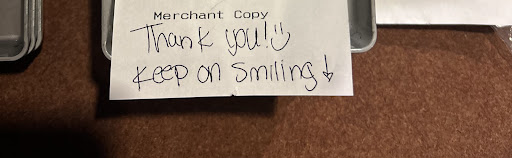 Merchant Copy
Thank you!
Keep on smiling